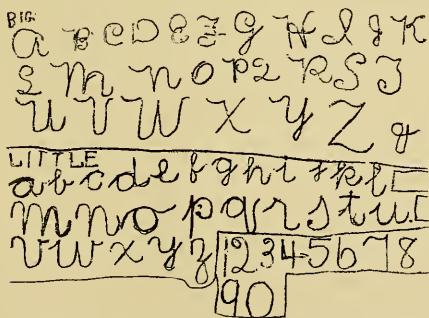 BIG
a B C D E F G H I J K
L M N O P Q R S T
U V W X Y Z &
LITTLE
a b c d e f g h i j k l
m n n o p q r s t u
v w x y z 1 2 3 4 5 6 7 8
9 0